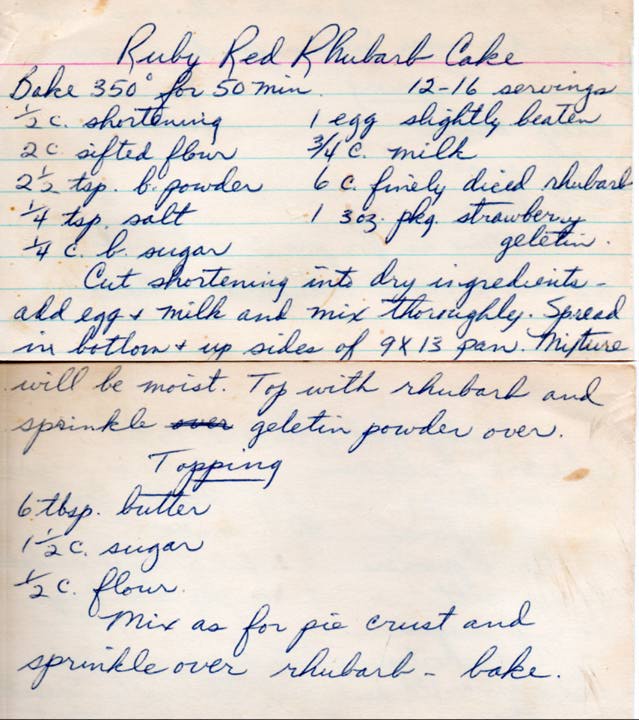 Ruby Red Rhubarb Cake
Bake 350° for 50 min. 12-16 servings
½ c. shortening 1 egg slightly beaten
2 c. sifted flour ¾ c. milk
2½ tsp. b. powder 6 c. finely diced rhubarb
¼ tsp. salt 1 3 oz. pkg. strawberry
¼ c. b. sugar geletin.
Cut shortening into dry ingredients -
add egg + milk and mix thoroughly. Spread
in bottom + up sides of 9X13 pan. Mixture
will be moist. Top with rhubarb and
sprinkle over geletin powder over.
Topping
6 tbsp. butter
1½ c. sugar
½ c. flour.
Mix as for pie crust and
sprinkle over rhubarb - bake.